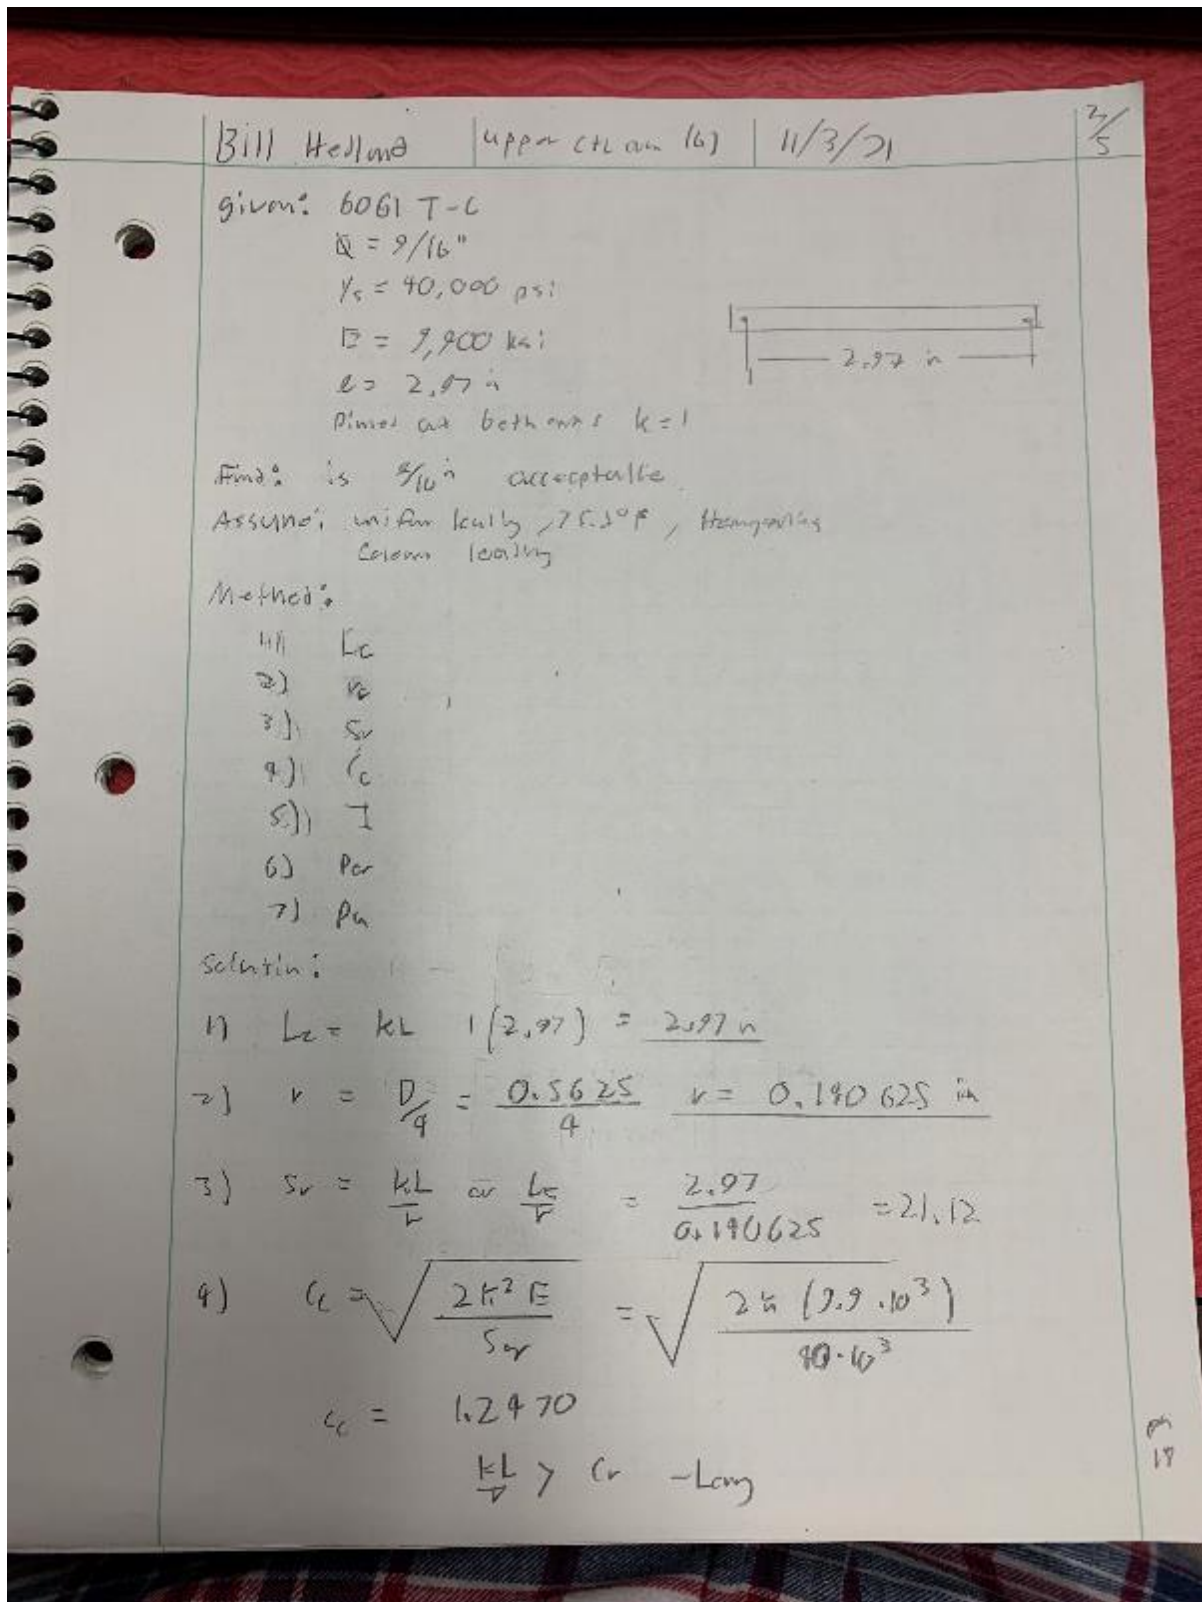 Bill Hellond upper ctl arm (6) 11/3/21 2/5
given: 6061 T-6
= 9/16"
Ys = 40,000 psi
E = 9,900 ksi
l = 2.97 in
2.97 in
Pinned at both ends k=1
Find: is 9/16 in acceptable
Assume: uniform , °F,
Column loading
Method:
1) Lc
2) r
3.) Sr
4.) Cc
5.) I
6) Pcr
7) Pa
Solutin:
1) Lc = KL 1(2.97) = 2.97 in
2) r = D/4 = 0.5625/4 r = 0.140625 in
3) Sr = KL/r or Lc/r = 2.97/0.140625 = 21.12
4) Cc = √(2π² E/Sy) = √(2π (9.9·10³)/40·10³)
Cc = 1.2470
KL/r > Cr - Long
pg
18